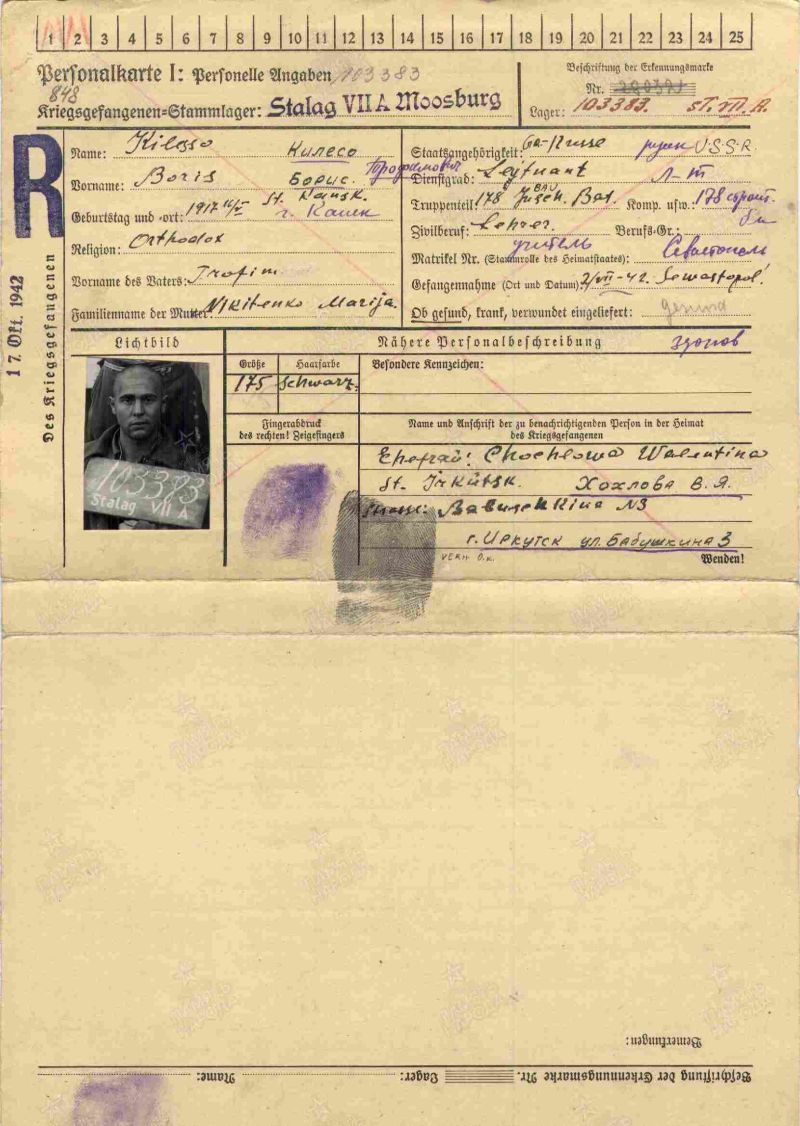 1 2 3 4 5 6 7 8 9 10 11 12 13 14 15 16 17 18 19 20 21 22 23 24 25
Personalkarte I: Personelle Angaben 103383
848
Kriegsgefangenen-Stammlager: Stalag VII A Moosburg
Beschriftung der Erkennungsmarke
Nr.
Lager: 103383. ST. VII. A.
R
17. Okt. 1942
Des Kriegsgefangenen
Name: Kilesso Килесо
Vorname: Boris Борис. Трофимович
Geburtstag und -ort: 1917 St. Kansk.
г. Канск
Religion: Orthodox
Vorname des Vaters: Trofim
Familienname der Mutter: Nikitenko Marija.
Staatsangehörigkeit: Russe U.S.S.R.
Dienstgrad: Leytnant Л-т
Truppenteil: 178 BAU Bat. Komp. usw.: 178
Zivilberuf: Lehrer. Berufs-Gr.:
учитель
Matrikel Nr. (Stammrolle des Heimatstaates): Севастополь
Gefangennahme (Ort und Datum): 2/VII-42. Sewastopol.
Ob gesund, krank, verwundet eingeliefert: gesund
здоров
Lichtbild
Nähere Personalbeschreibung
Größe Haarfarbe Besondere Kennzeichen:
175 Schwarz.
103383
Stalag VII A
Fingerabdruck
des rechten! Zeigefingers
Name und Anschrift der zu benachrichtigenden Person in der Heimat
des Kriegsgefangenen
Ehefrau: Chochlowa Walentina
St. Irkutsk. Хохлова В.Я.
Babuschkina N3
г. Иркутск ул. Бабушкина 3
Wenden!
Bemerkungen:
Beschriftung der Erkennungsmarke Nr. Lager: Name: